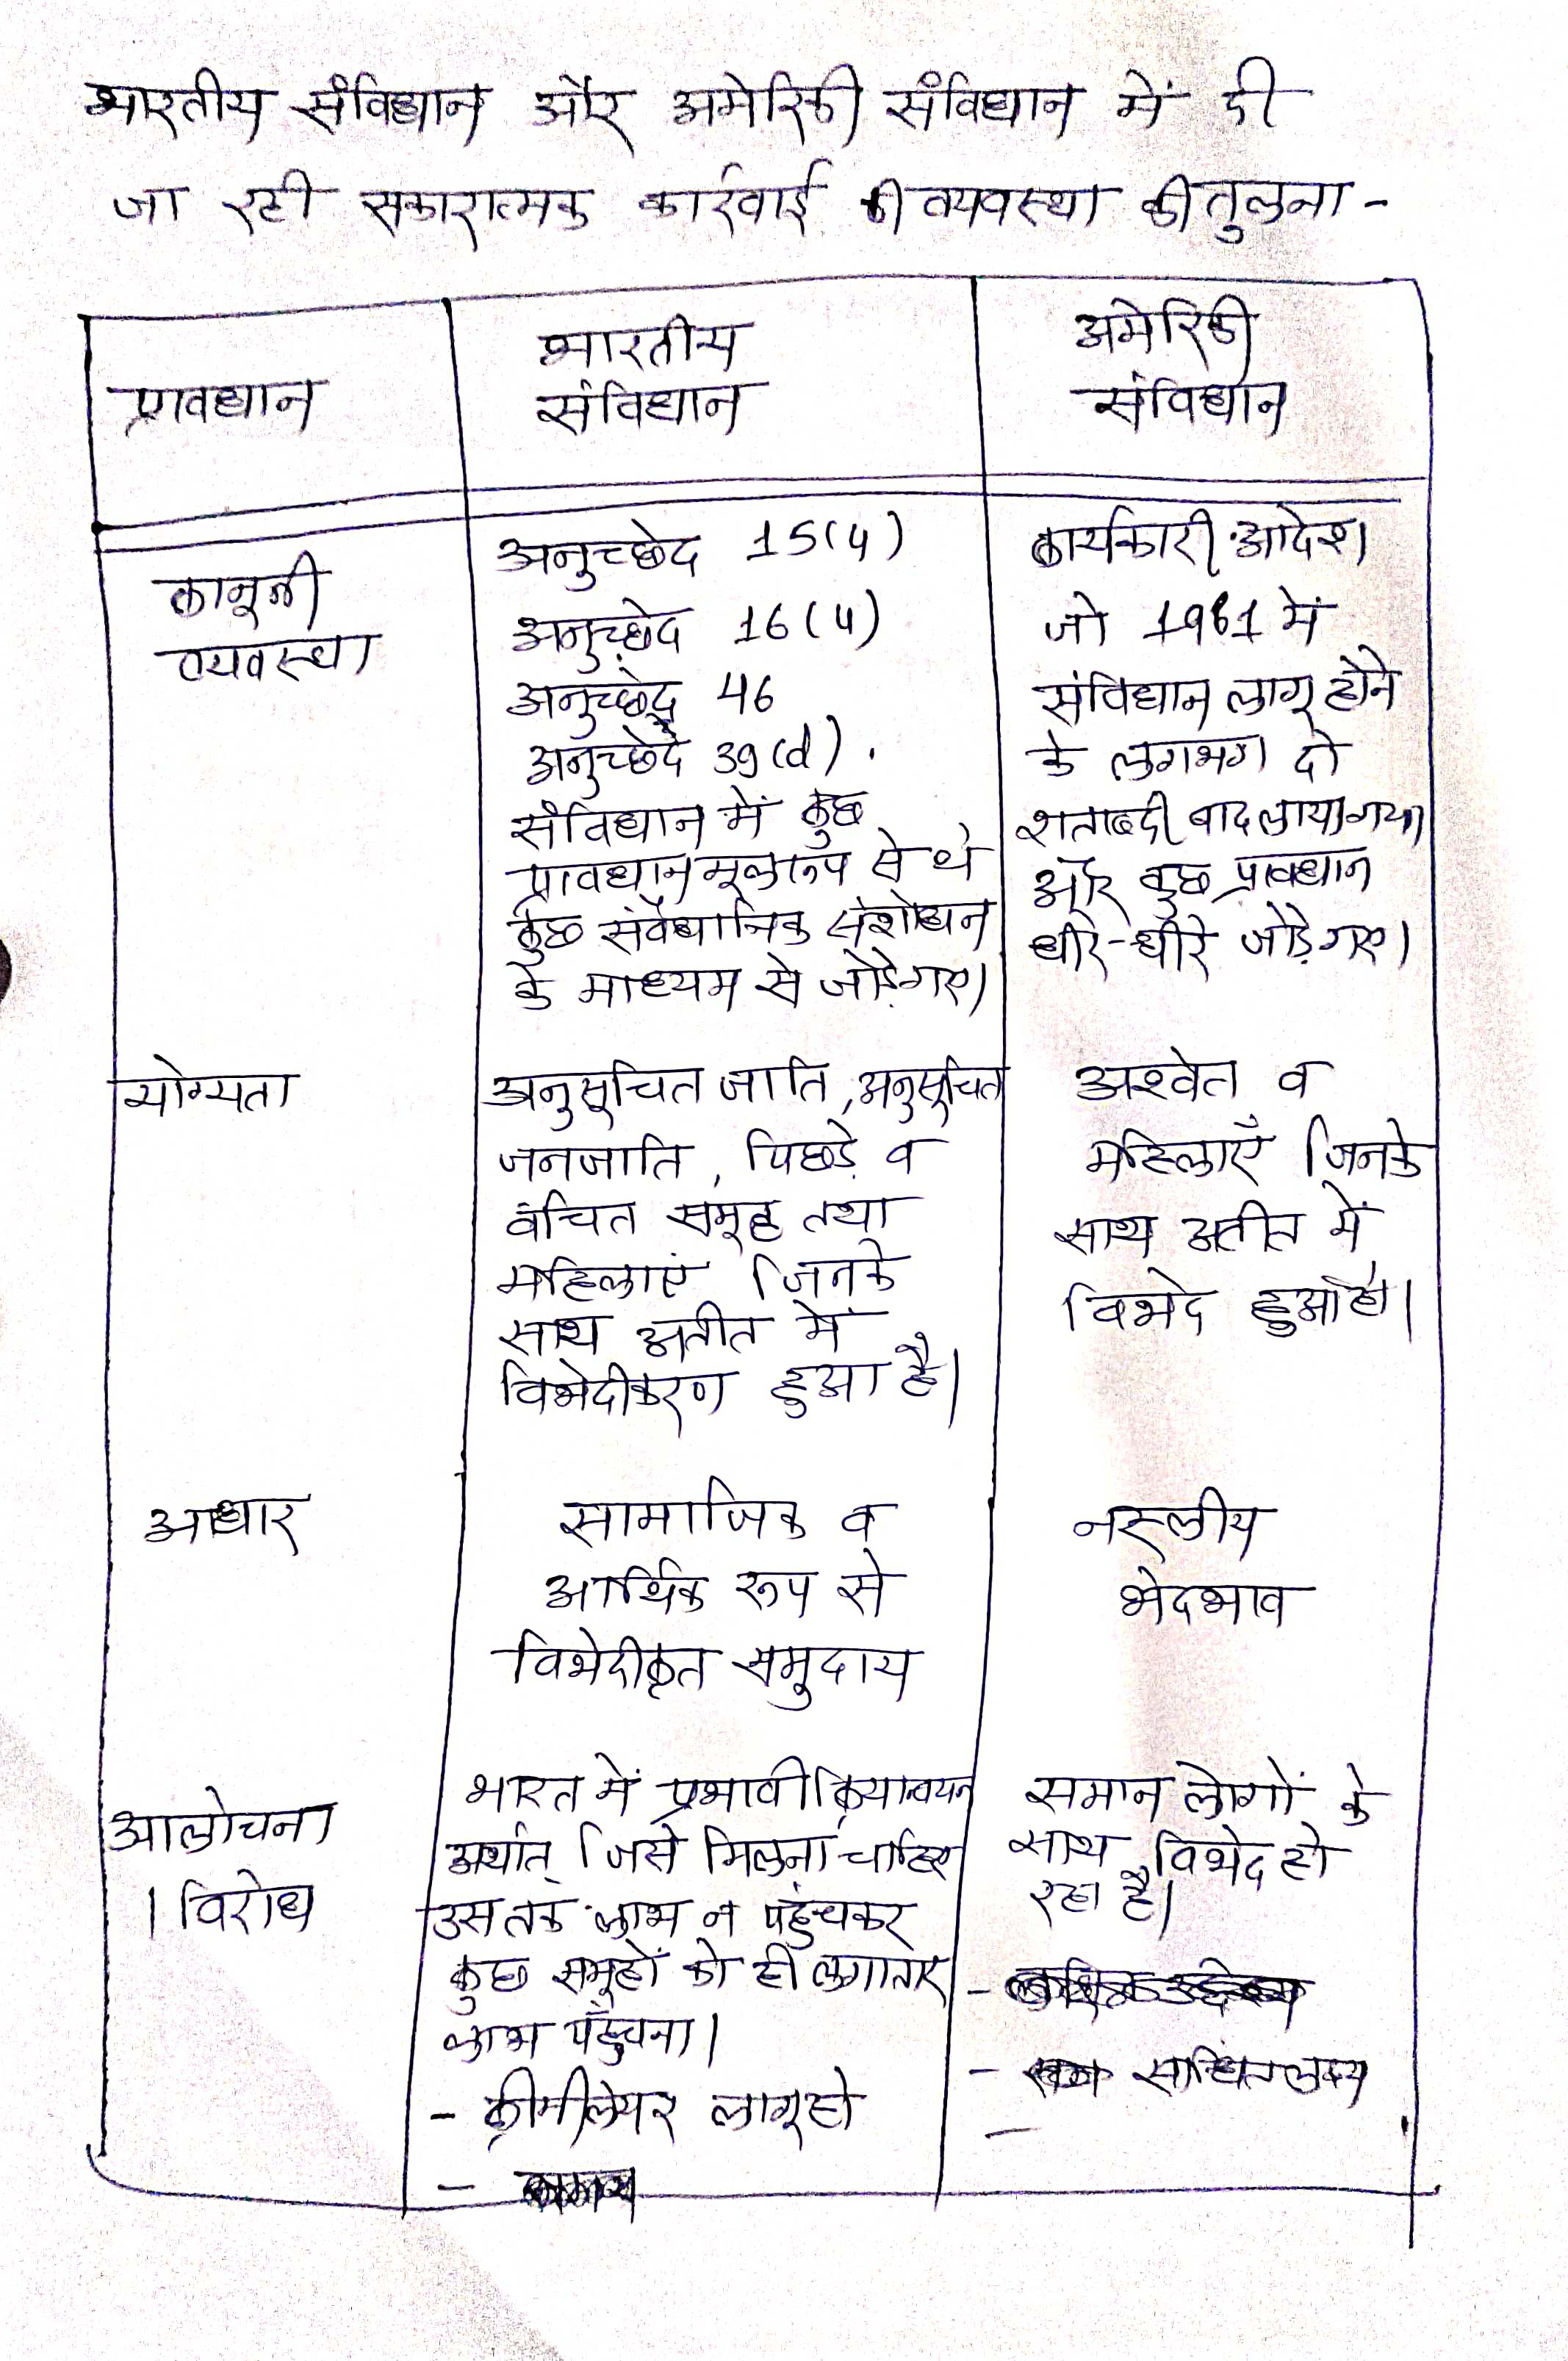 भारतीय संविधान और अमेरिकी संविधान में दी
जा रही सकारात्मक कार्रवाई की व्यवस्था की तुलना -
प्रावधान
भारतीय
संविधान
अमेरिकी
संविधान
कानूनी
व्यवस्था
अनुच्छेद 15(4)
अनुच्छेद 16(4)
अनुच्छेद 46
अनुच्छेद 39(d).
संविधान में कुछ
प्रावधान मूलरूप से थे
कुछ संवैधानिक संशोधन
के माध्यम से जोड़े गए।
कार्यकारी आदेश
जो 1961 में
संविधान लागू होने
के लगभग दो
शताब्दी बाद लाया गया
और कुछ प्रावधान
धीरे-धीरे जोड़े गए।
योग्यता
अनुसूचित जाति, अनुसूचित
जनजाति, पिछड़े व
वंचित समूह तथा
महिलाएं जिनके
साथ अतीत में
विभेदीकरण हुआ है।
अश्वेत व
महिलाएँ जिनके
साथ अतीत में
विभेद हुआ है।
आधार
सामाजिक व
आर्थिक रूप से
विभेदीकृत समुदाय
नस्लीय
भेदभाव
आलोचना
/ विरोध
भारत में प्रभावी क्रियान्वयन
अर्थात् जिसे मिलना चाहिए
उस तक लाभ न पहुंचकर
कुछ समूहों को ही लगातार
लाभ पहुँचना।
- क्रीमीलेयर लागू हो
-
समान लोगों के
साथ विभेद हो
रहा है।
-
- लक्ष्य
-